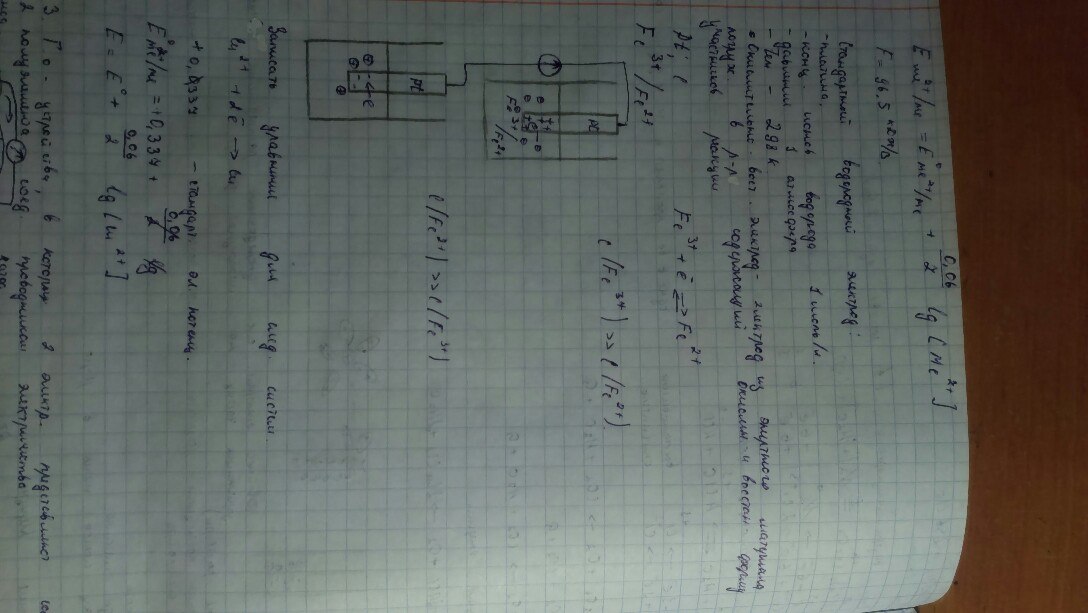 E Me²⁺/Me = E° Me²⁺/Me + 0,06/2 lg [Me²⁺]
F = 96,5 кДж/В
Стандартный водородный электрод:
- платина
- конц. ионов водорода 1 моль/л.
- давлении 1 атмосфера
- тем - 298 К
• Окислительно-вост. электрод - электрод из инертного материала
погруж. в р-р содержащий окислен- и восстан. форму
участников реакции
Pt, C
Fe³⁺ + e⁻ ⇄ Fe²⁺
Fe³⁺/Fe²⁺
Pt
Fe³⁺/Fe²⁺
C (Fe³⁺) >> C (Fe²⁺)
Pt
C(Fe²⁺) >> C(Fe³⁺)
Записать уравнение для след. систем.
Cu²⁺ + 2e⁻ → Cu
+ 0,337 - стандарт. эл потенц.
E° Me²⁺/Me = +0,337 + 0,06/2 lg
E = E° + 0,06/2 lg [Cu²⁺]
3 Г о - устройства, в которых 2 электр. представляют
2 полуэлемента соед. проводником электричества